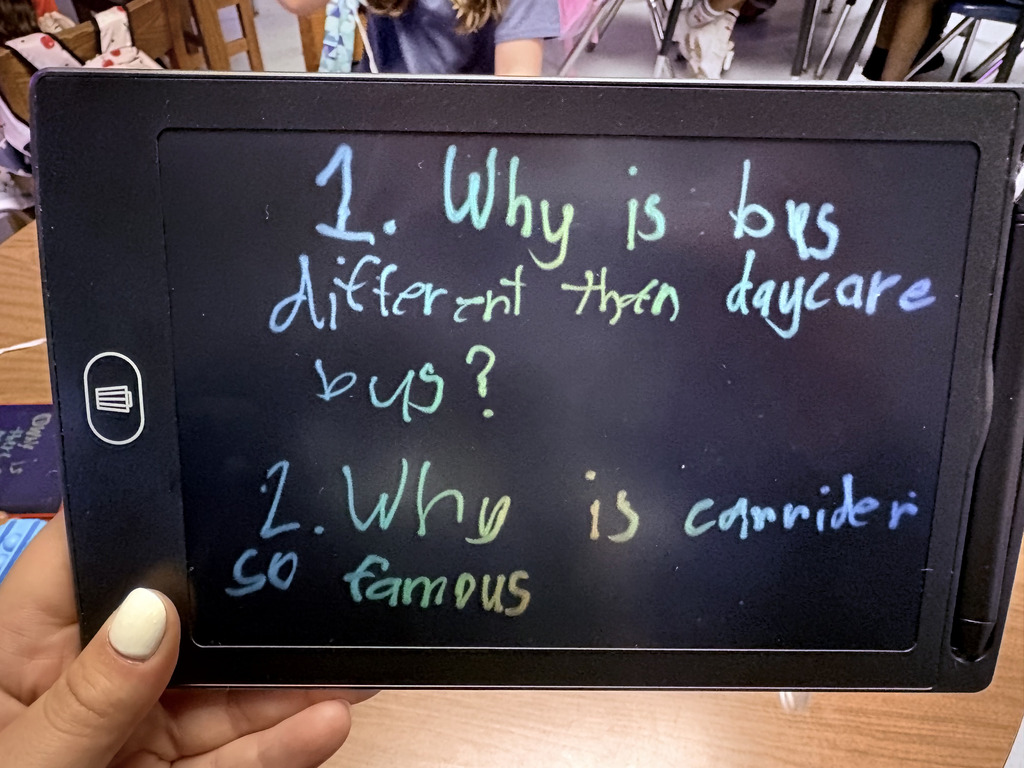 1. Why is bus
different then daycare
bus?
2. Why is corrider
so famous